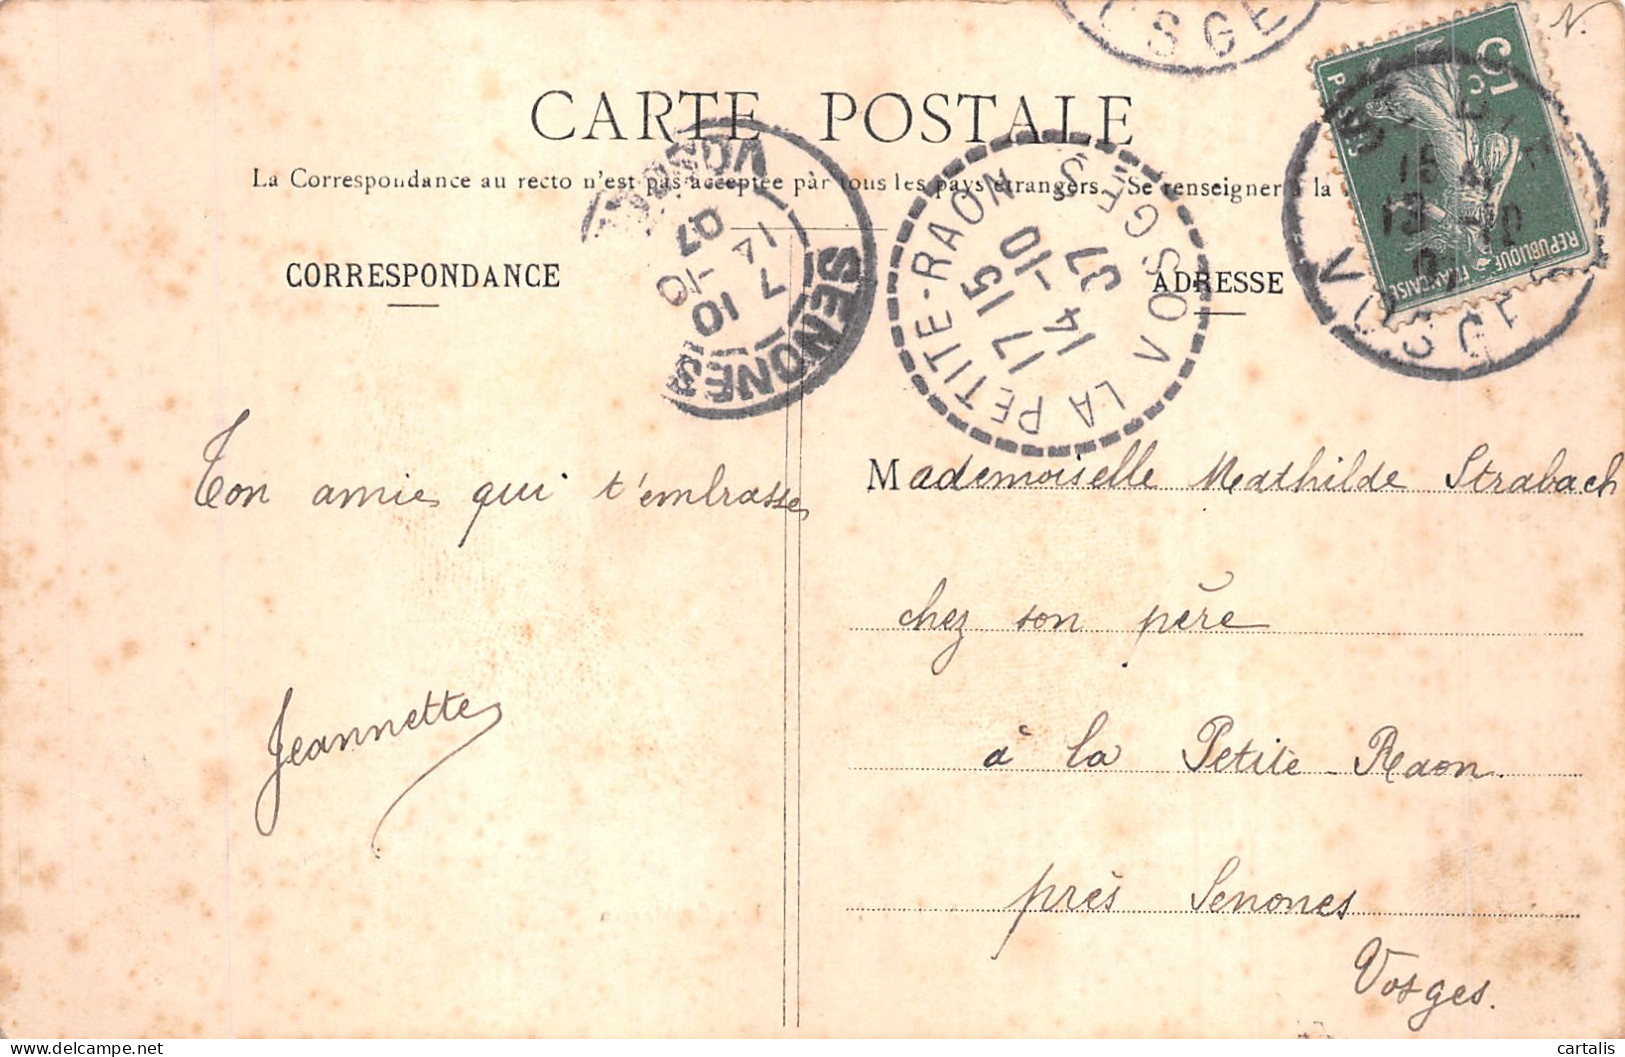 CARTE POSTALE
La Correspondance au recto n'est pas acceptée par tous les pays étrangers. Se renseigner à la
CORRESPONDANCE
ADRESSE
SENONES
7 10
14 -10
07
LA PETITE-RAON
VOSGES
17 15
14 -10
07
5c
RÉPUBLIQUE FRANÇAISE
POSTES
N.
Ton amie qui t'embrasse
Jeannette
Mademoiselle Mathilde Strabach
chez son père
à la Petite-Raon
près Senones
Vosges.
cartalis
delcampe.net